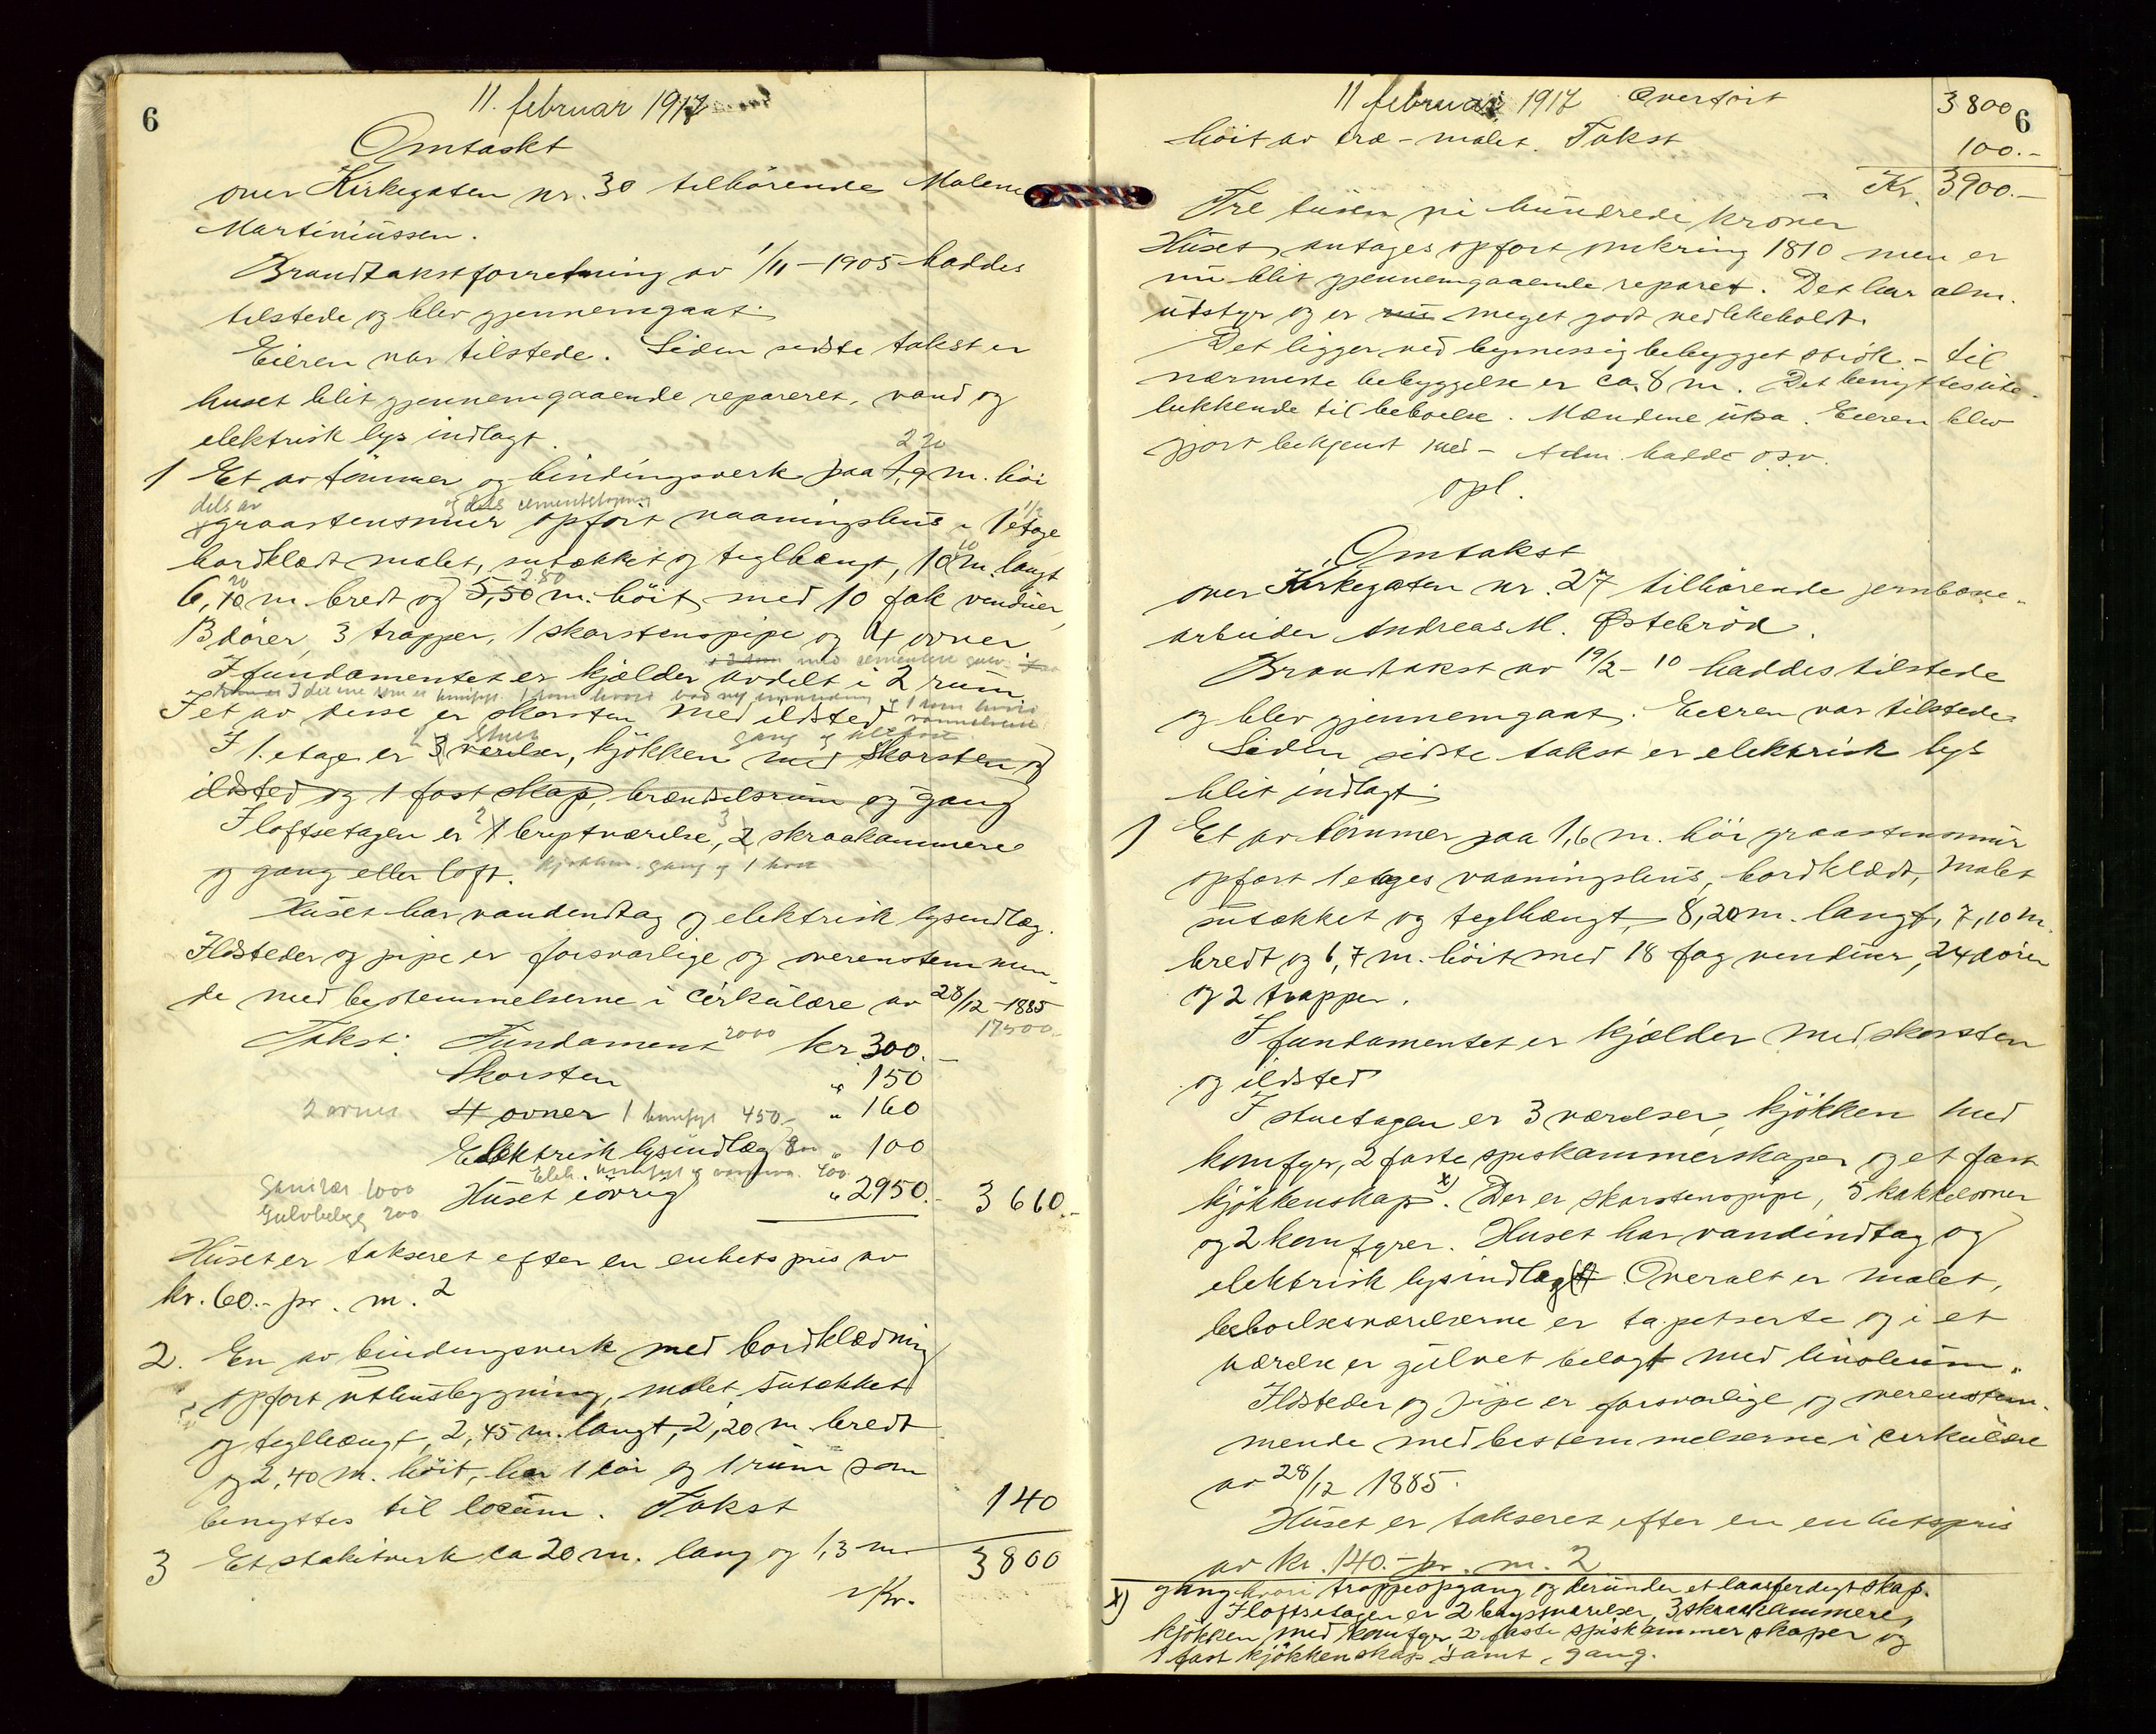 6
11. februar 1917
Omtakst
over Kirkegaten nr. 30 tilhörende Malene
Martiniussen.
Brandtakstforretning av 1/11-1905 haddes
tilstede og blev gjennemgaat.
Eieren var tilstede. Siden sidste takst er
huset blit gjennemgaaende reparert, vand og
elektrisk lys indlagt.
2 20
1 Et av tömmer og bindingsverk paa 1,9 m. höi
dels av og dels cementstöpning 1/2
graastensmur opfört vaaningshus i 1 etage
bordklædt malet, sutækket og teglhængt, 10 m. langt
20 2.80
6,10 m. bredt og 5,50 m. höit, med 10 fak vinduer
13 dörer, 3 trapper, 1 skorstenspipe og 4 ovner.
I fundamentet er kjælder avdelt i 2 rum
I et av disse er skorsten med ildsted
gang og
I 1. etage er 3 værelser, kjökken med skorsten og
ildsted og 1 fast skap, brændselsrum og gang
2 3
I loftsetagen er 1 brystværelse, 2 skraakammere
og gang eller loft. kjökken. gang og 1 bod
Huset har vandindtag og elektrisk lysindlæg.
Ildsteder og pipe er forsvarlige og overenstemmen-
de med bestemmelserne i cirkulære av 28/12-1885
17500
Takst: Fundament 2000 kr 300.-
Skorsten " 150
2 ovner 4 ovner 1 komfyr 450.- " 160
Elektrisk lysindlæg " 100
Elek. komfyr og 400.
Sanitær 1000 Huset iövrig " 2950.- 3660.-
Gulvbelegg 200
Huset er takseret efter en enhetspris av
kr. 60.- pr. m. 2
2. En av bindingsverk med bordklædning
opfört uthusbygning, malet, sutækket
og teglhængt, 2,45 m. langt, 2,20 m. bredt
og 2,40 m. höit, har 1 dör og 1 rum som
benyttes til locum. Takst 140
3 Et stakitverk ca 20 m. lang og 1,3 m. 3800
Kr.
11 februar 1917 Overfört 3800
6
höit av træ - malet. Takst 100.-
Kr. 3900.-
Tre tusen ni hundrede kroner
Huset antages opfört omkring 1810 men er
nu blit gjennemgaaende reparet. Det har alm.
utstyr og er nu meget godt vedlikeholdt.
Det ligger ved bymessig bebygget strök - til
nærmeste bebyggelse er ca. 8 m. Det benyttes ute-
lukkende til beboelse. Mændene Eieren blev
gjort bekjent med - Adm. hadde o.s.v.
opl.
Omtakst
over Kirkegaten nr. 27 tilhörende jernbane-
arbeider Andreas M. Östebröd.
Brandtakst av 19/2-10 haddes tilstede
og blev gjennemgaat. Eieren var tilstede
Siden sidste takst er elektrisk lys
blit indlagt.
1 Et av tömmer paa 1,6 m. höi graastensmur
opfört 1 etages vaaningshus, bordklædt, malet
sutækket og teglhængt, 8,20 m. langt, 7,10 m.
bredt og 6,7 m. höit med 18 fag vinduer, 24 dörer
og 2 trapper.
I fundamentet er kjælder med skorsten
og ildsted
I stuetagen er 3 værelser, kjökken med
komfyr, 2 faste spiskammerskaper og et fast
kjökkenskap x). Der er skorstenspipe, 5 kakkelovner
og 2 komfyrer. Huset har vandindtag og
elektrisk lysindlæg. Overalt er malet,
beboelsesværelserne er tapetserte og i et
værelse er gulvet belagt med linoleum.
Ildsteder og pipe er forsvarlige og overenstem-
mende med bestemmelserne i cirkulære
av 28/12 1885.
Huset er takseret efter en enhetspris
av kr. 140.- pr. m. 2
x) gang hvori trappeopgang og derunder et laasferdigt skap.
I loftsetagen er 2 brystværelser, 3 skraakammere,
kjökken med komfyr 2 faste spiskammer skaper og
1 fast kjökkenskap samt gang.